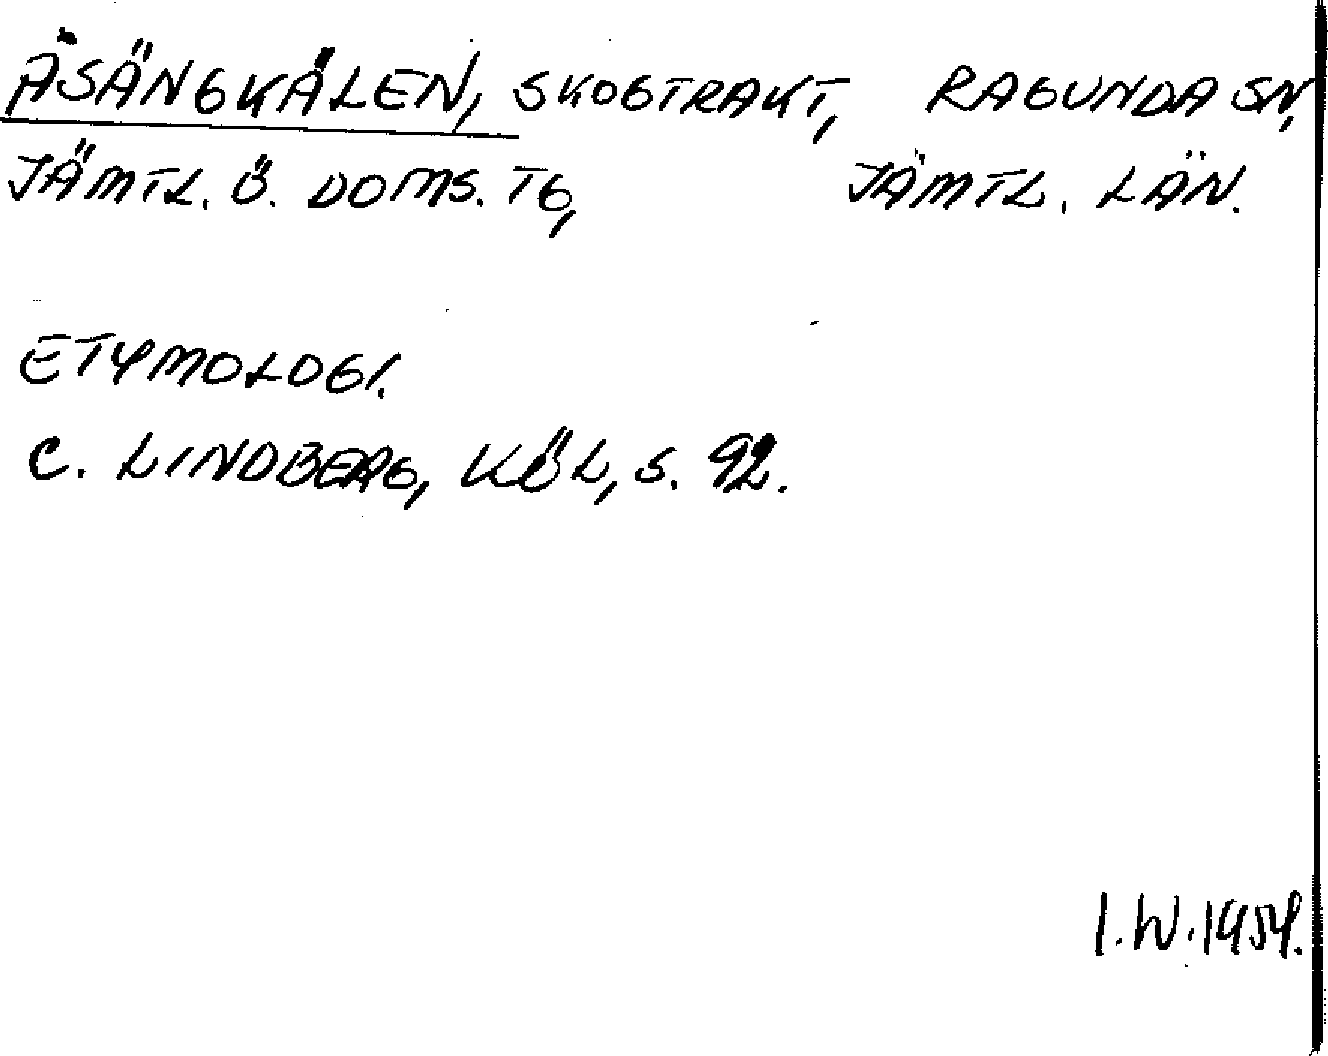 ÅSÄNGKÅLEN, SKOGTRAKT, RAGUNDA SN,
JÄMTL. Ö. DOMS. TG, JÄMTL. LÄN.
ETYMOLOGI.
C. LINDBERG, KÖL, S. 92.
I.W. 1954.